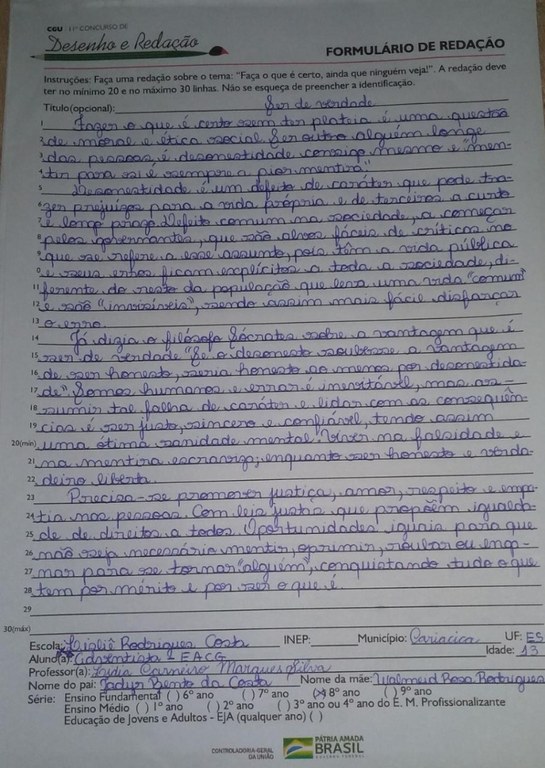 CGU 11º CONCURSO DE
Desenho e Redação
FORMULÁRIO DE REDAÇÃO
Instruções: Faça uma redação sobre o tema: "Faça o que é certo, ainda que ninguém veja!". A redação deve
ter no mínimo 20 e no máximo 30 linhas. Não se esqueça de preencher a identificação.
Título(opcional): Ser de verdade
1 Fazer o que é certo sem ter plateia é uma questão
2 de moral e ética social. Ser outro alguém longe
3 das pessoas, é desonestidade consigo mesmo e "men-
4 tir para si é sempre a pior mentira".
5 Desonestidade é um defeito de caráter que pode tra-
6 zer prejuízos para a vida própria e de terceiros a curto
7 e longo prazo. Defeito comum na sociedade, a começar
8 pelos governantes, que são alvos fáceis de críticas no
9 que se refere a esse assunto, pois têm a vida pública
0 e seus erros ficam explícitos a toda a sociedade, di-
11 ferente do resto da população que leva uma vida "comum"
12 e são "invisíveis", sendo assim mais fácil disfarçar
13 o erro.
14 Já dizia o filósofo Sócrates sobre a vantagem que é
15 ser de verdade "Se o desonesto soubesse a vantagem
16 de ser honesto, seria honesto ao menos por desonestida-
17 de". Somos humanos e errar é inevitável, mas as-
18 sumir tal falha de caráter e lidar com as consequên-
19 cias é ser justo, sincero e confiável, tendo assim
20(min) uma ótima sanidade mental. Viver na falsidade e
21 na mentira escraviza, enquanto ser honesto e verda-
22 deiro liberta.
23 Precisa-se promover justiça, amor, respeito e empa-
24 tia nas pessoas. Com leis justas que propõem igualda-
25 de de direitos a todos. Oportunidades iguais para que
26 não seja necessário mentir, oprimir, roubar ou enga-
27 nar para se tornar "alguém", conquistando tudo o que
28 tem por mérito e por ser o que é.
29
30(máx)
Escola: Rodrigues Costa INEP: Município: Cariacica UF: ES
Aluno(a): Adventista - EACG Idade: 13
Professor(a): Lydia Carneiro Marques Silva
Nome do pai: Bento da Costa Nome da mãe: Rosa Rodrigues
Série: Ensino Fundamental ( ) 6º ano ( ) 7º ano (X) 8º ano ( ) 9º ano
Ensino Médio ( ) 1º ano ( ) 2º ano ( ) 3º ano ou 4º ano do E. M. Profissionalizante
Educação de Jovens e Adultos - EJA (qualquer ano) ( )
CONTROLADORIA-GERAL
DA UNIÃO
PÁTRIA AMADA
BRASIL
GOVERNO FEDERAL